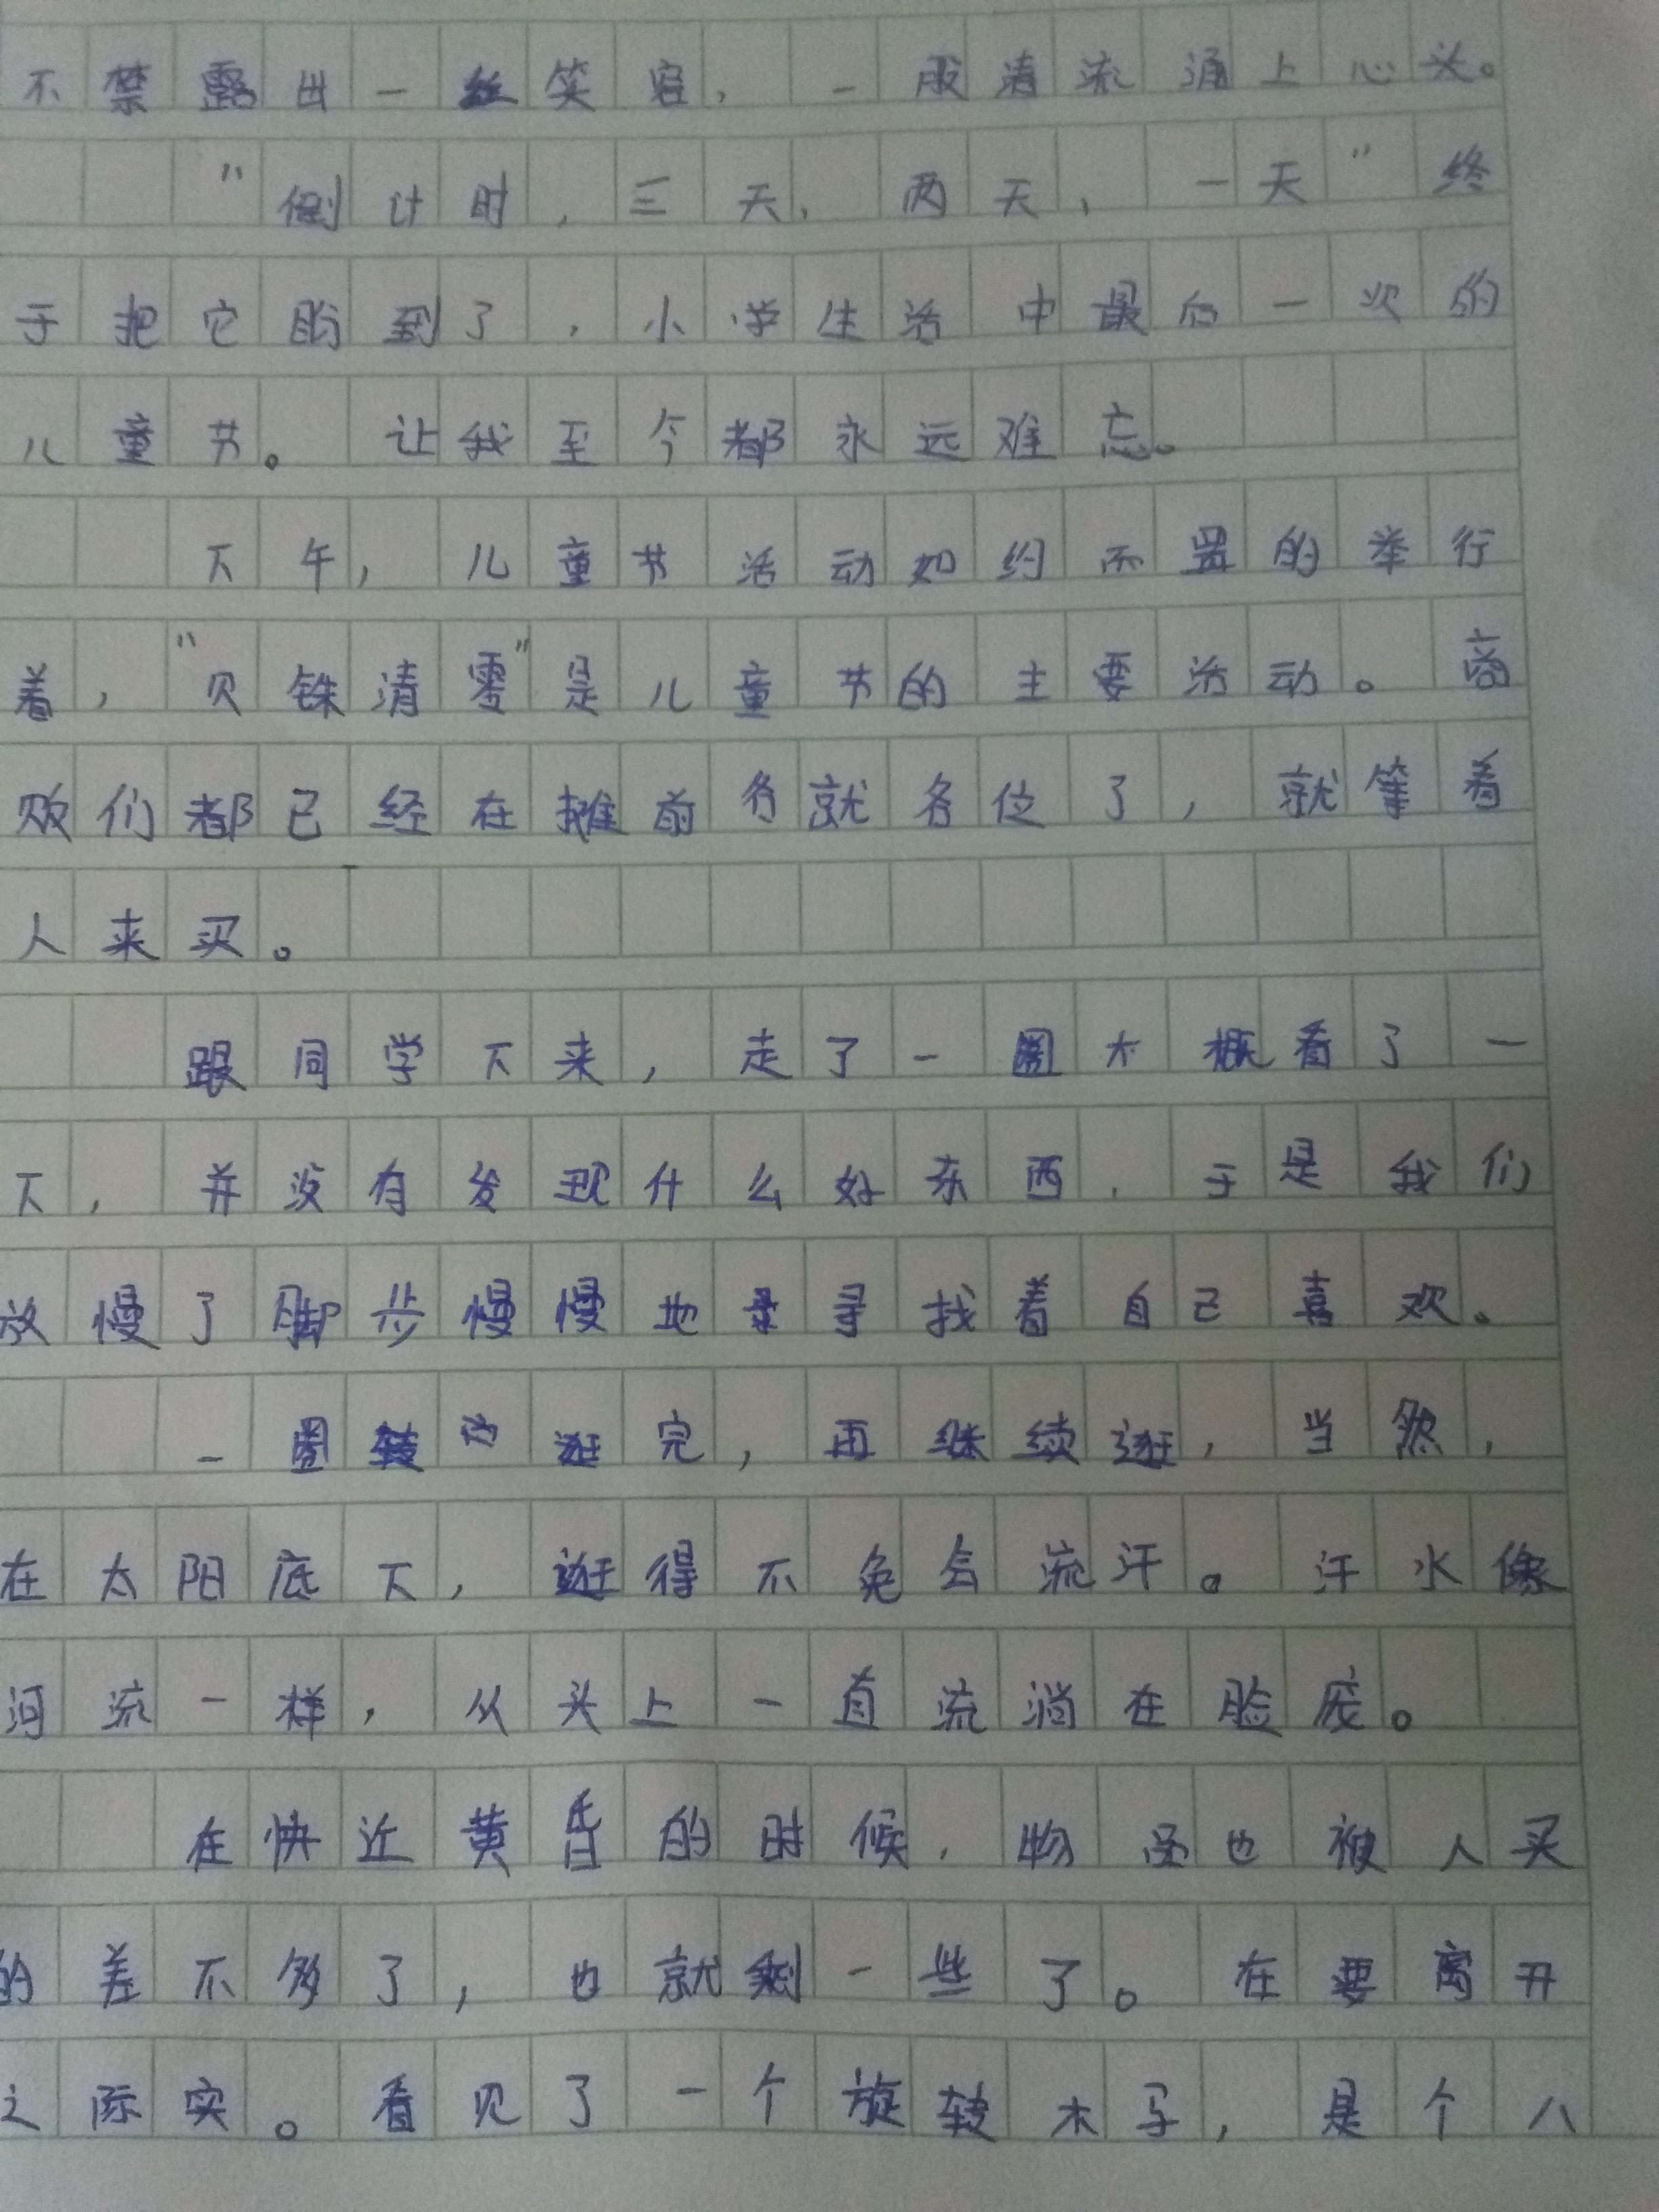 不禁露出一丝笑容，一股清流涌上心头。
“倒计时，三天，两天，一天”终
于把它盼到了，小学生活中最后一次的
儿童节。让我至今都永远难忘。
下午，儿童节活动如约而置的举行
着，“贝铢清零”是儿童节的主要活动。商
贩们都已经在摊前各就各位了，就等着
人来买。
跟同学下来，走了一圈大概看了一
下，并没有发现什么好东西，于是我们
放慢了脚步慢慢地寻找着自己喜欢。
一圈转逛完，再继续逛，当然，
在太阳底下，逛得不免会流汗。汗水像
河流一样，从头上一直流淌在脸庞。
在快近黄昏的时候，物品也被人买
的差不多了，也就剩一些了。在要离开
之际实。看见了一个旋转木马，是个八